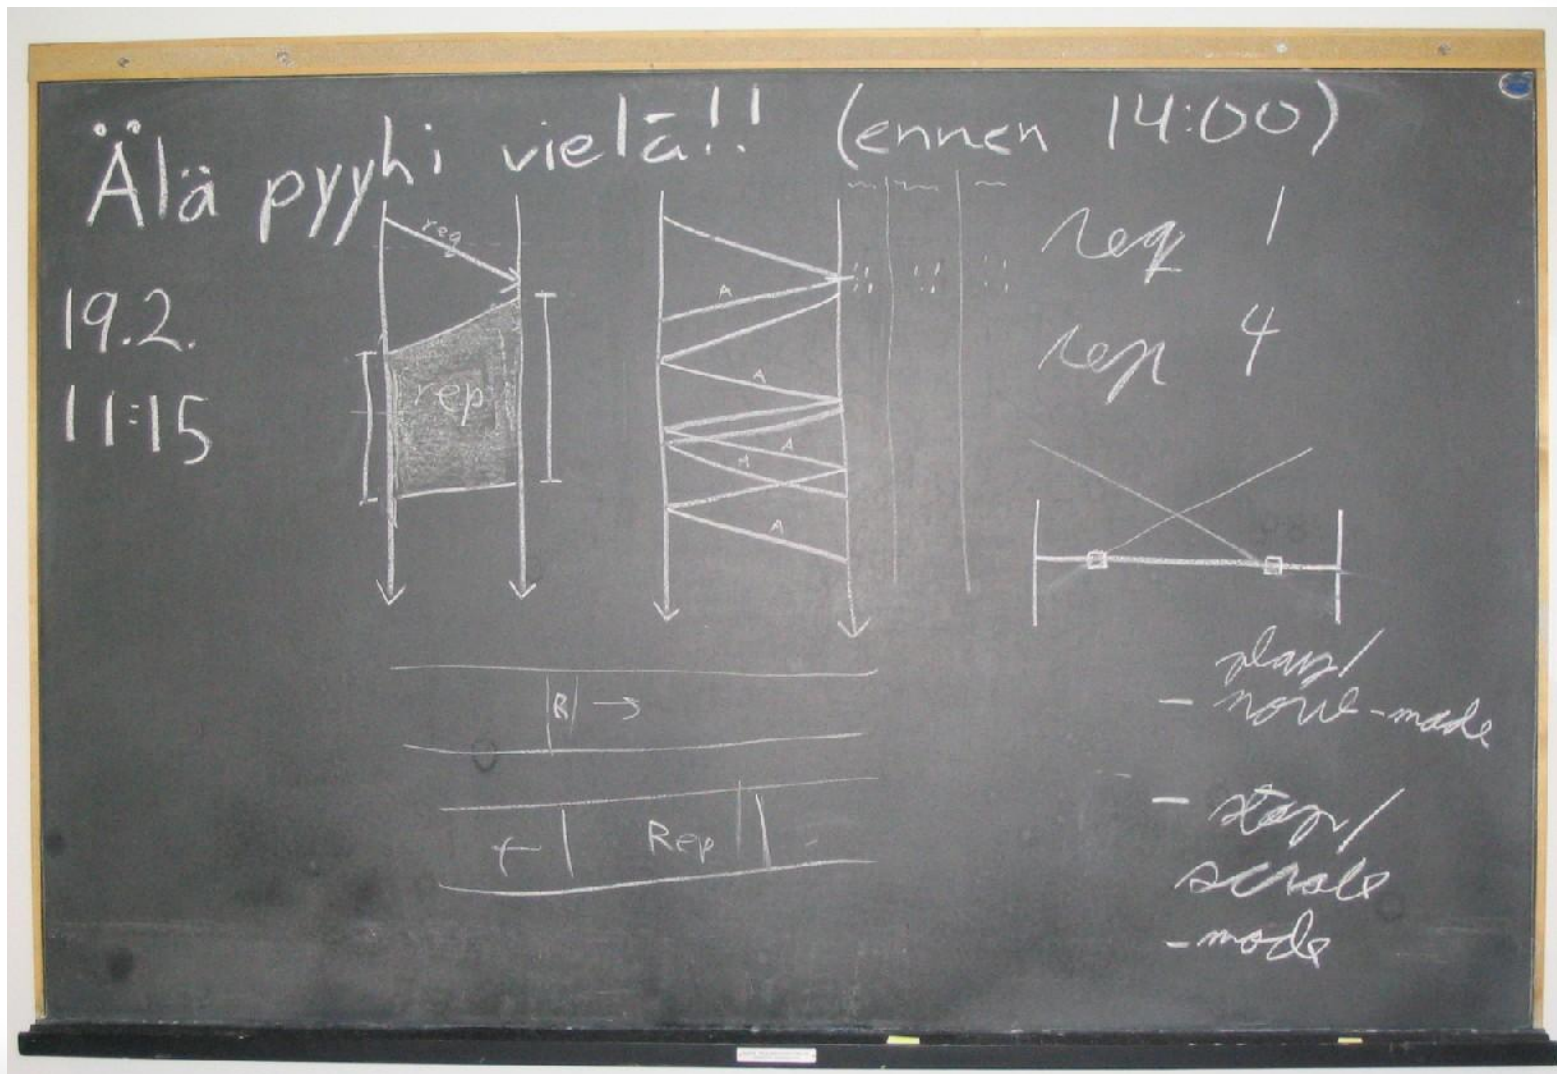 Älä pyyhi vielä!! (ennen 14:00)
19.2.
11:15
req
rep
A
A
A
A
A
req 1
rep 4
R →
← Rep
play/
- move-mode
- stop/
scrole
-mode